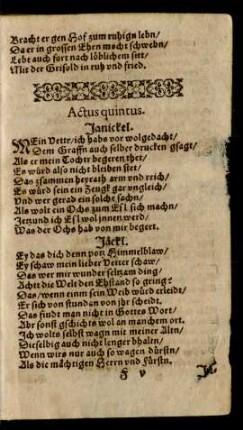 Bracht er gen Hof zum ruhign lebn/
Da er in grossen Ehrn mocht schwebn/
Lebt auch fort nach löblichem sitt/
Mit der Grisold in ruh und fried.
Actus quintus.
Janickel.
MEin Vetter/ich habs vor wolgedacht/
Dem Graffn auch selber drucken gsagt/
Als er mein Tochtr begeren thet/
Es würd also nicht bleiben stet/
Das zsammen heyrath arm und reich/
Es würd sein ein Zeugk gar ungleich/
Und wer gerad ein solche sachn/
Als wolt ein Ochs zum Esl sich machn/
Jetzund ich Esl wol innen werd/
Was der Ochs hab von mir begert.
Jäckl.
Ey das dich denn potz Himmelblaw/
Ey schaw mein lieber Vetter schaw/
Das wer mir wunder seltzam ding/
Acht die Welt den Ehstand so gring?
Das/wenn einm sein Weib würd erleidt/
Er sich von stundan von ihr scheidt.
Das findt man nicht in Gottes Wort/
Abr sonst gschichts wol an manchem ort.
Ich wolts selbst wagn mit meiner Altn/
Dieselbig auch nicht lenger bhaltn/
Wenn wirs nur auch so wagen dürstn/
Als die mächtigen Herrn und Fürstn.
F v